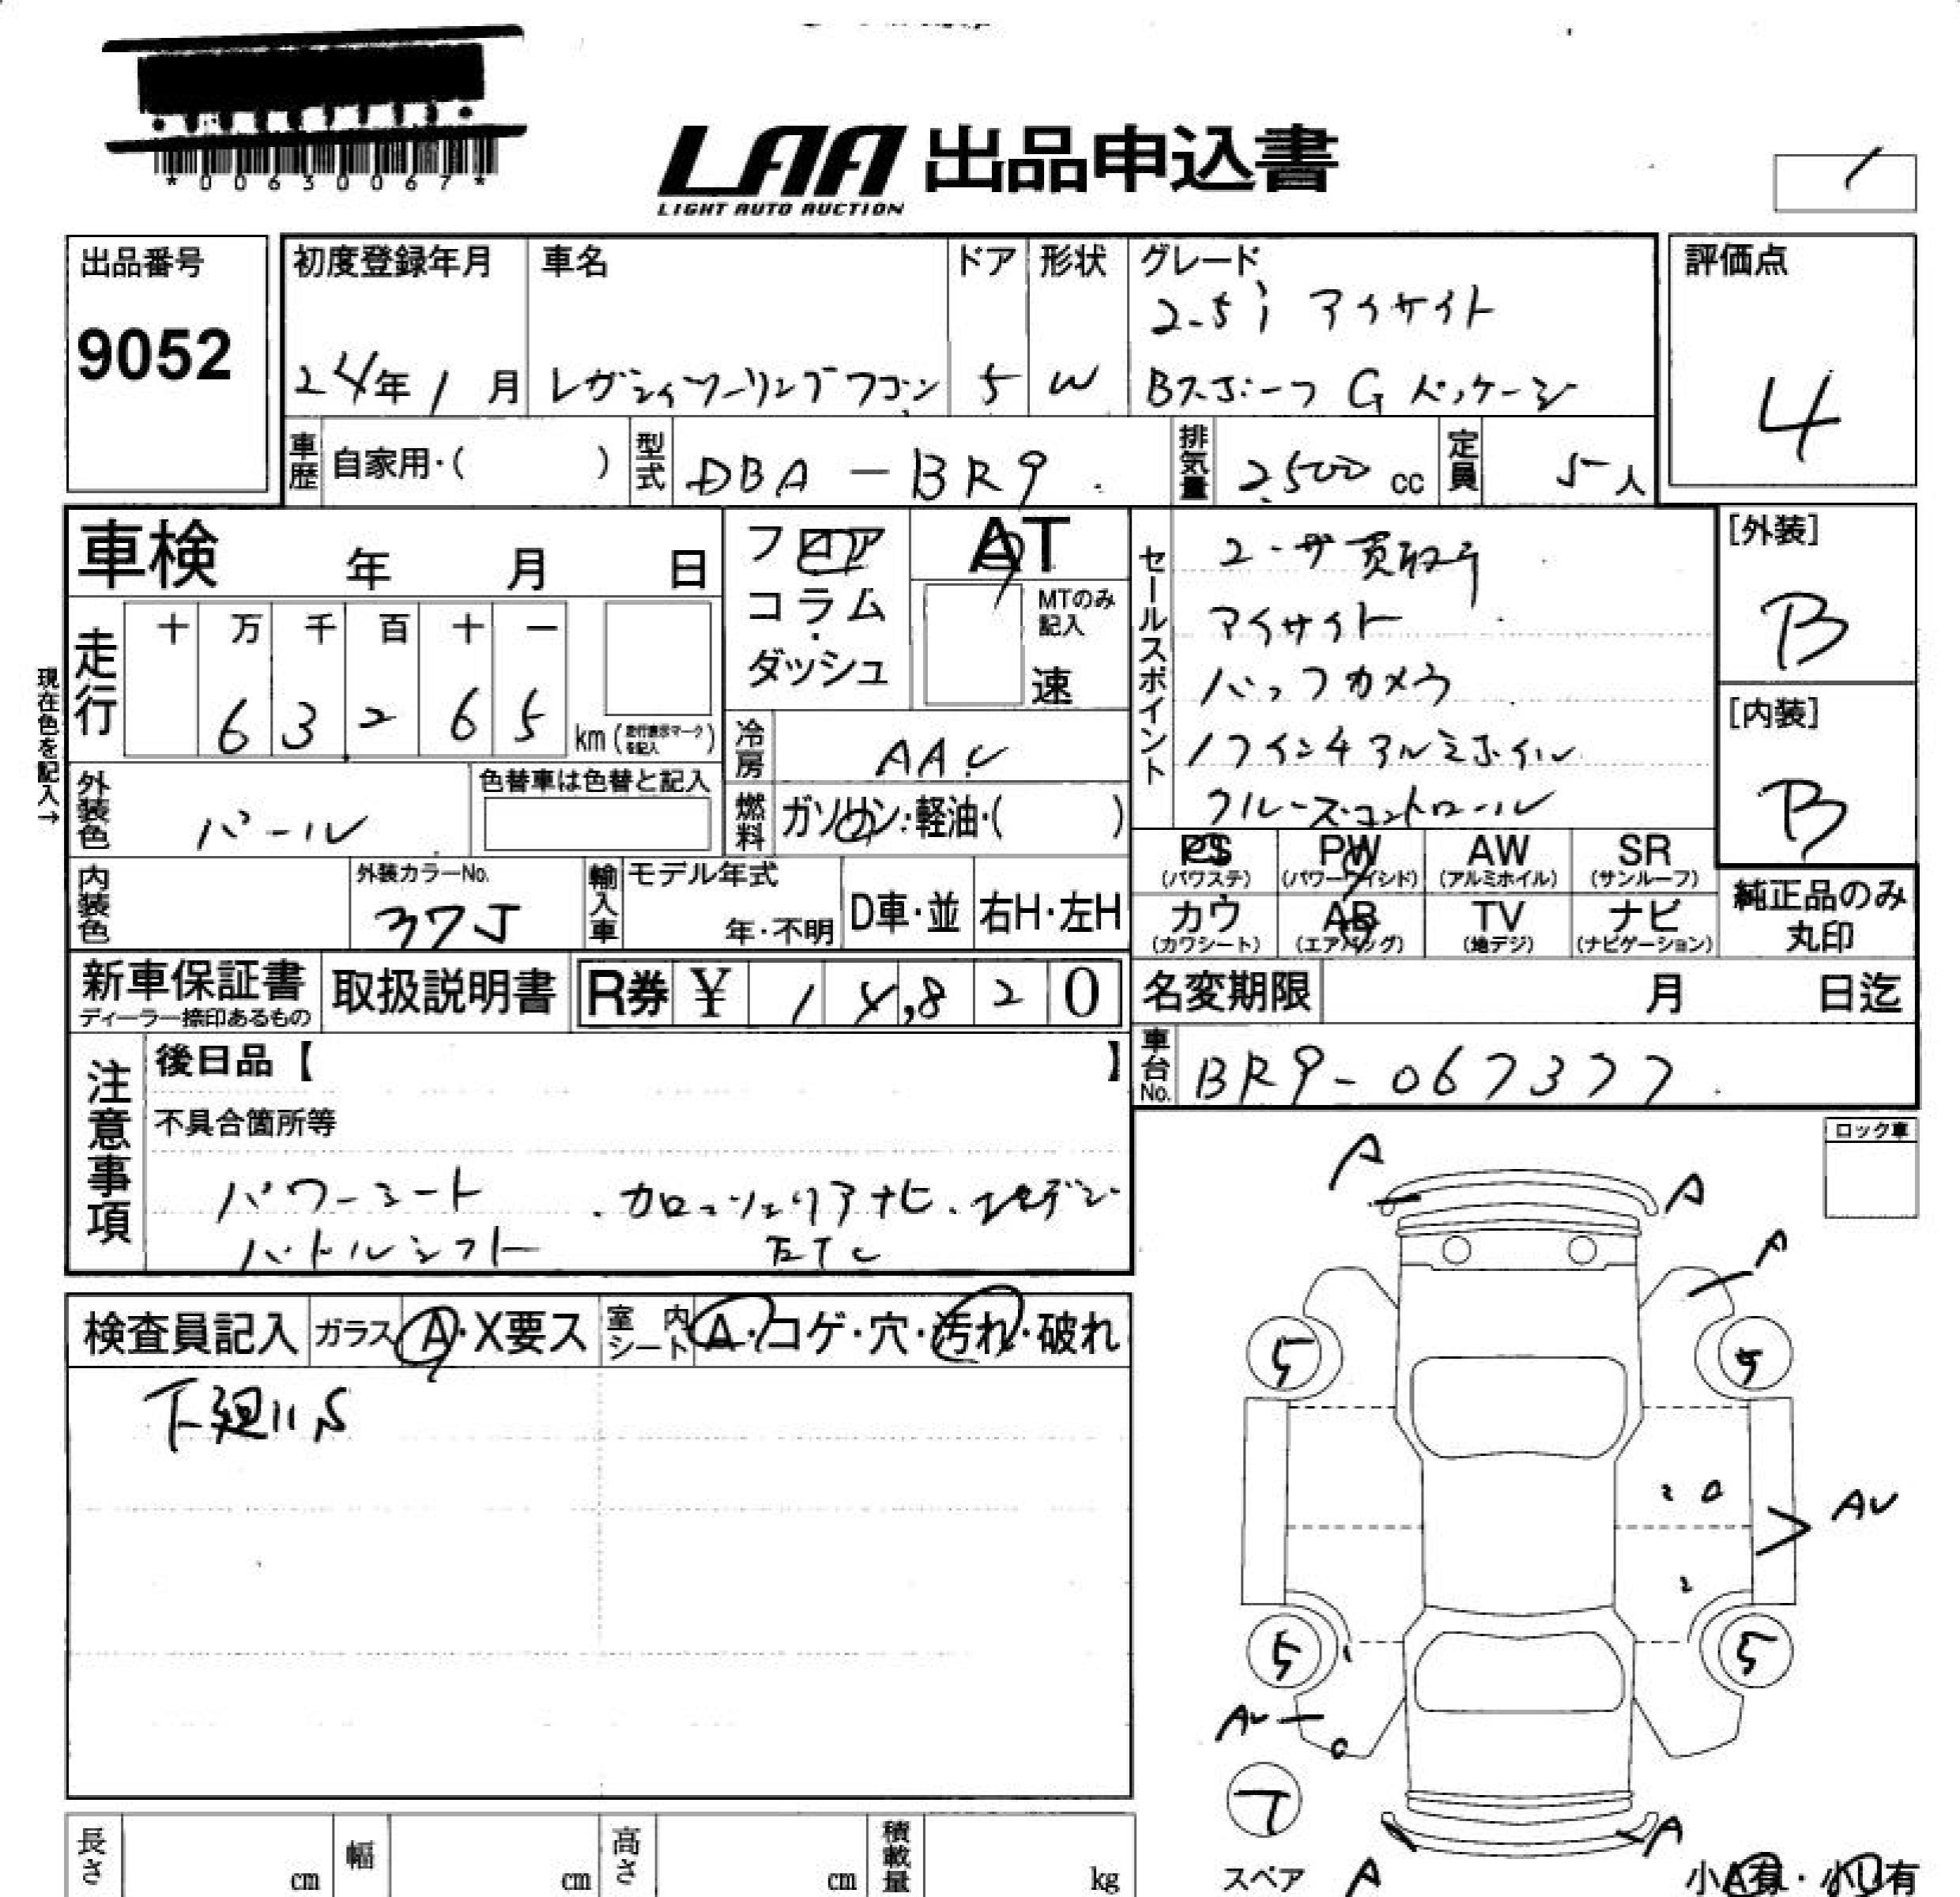 *00630067*
LAA 出品申込書
LIGHT AUTO AUCTION
出品番号
9052
初度登録年月
24年1月
車名
レガシィツーリングワゴン
ドア
5
形状
W
グレード
2.5i アイサイト
Bスポーツ G パッケージ
評価点
4
車歴
自家用・( )
型式
DBA-BR9
排気量
2,500 cc
定員
5人
車検 年 月 日
フロア
コラム
ダッシュ
AT
MTのみ
記入
速
セールスポイント
ユーザ買取り
アイサイト
バックカメラ
17インチアルミホイル
クルーズ・コントロール
[外装]
B
[内装]
B
現在色を記入→
走行
十 万 千 百 十 一
6 3 2 6 5
km(走行表示マークを記入)
冷房
AAC
燃料
ガソリン・軽油・( )
外装色
パール
色替車は色替と記入
内装色
外装カラーNo.
37J
輸入車
モデル年式
年・不明
D車・並
右H・左H
PS
(パワステ)
PW
(パワーウィンド)
AW
(アルミホイル)
SR
(サンルーフ)
カワ
(カワシート)
AB
(エアバッグ)
TV
(地デジ)
ナビ
(ナビゲーション)
純正品のみ
丸印
新車保証書
ディーラー捺印あるもの
取扱説明書
R券 ¥ 14,820
名変期限 月 日迄
車台No.
BR9-067377
注意事項
後日品【 】
不具合箇所等
パワーシート ・カロッツェリアナビ・地デジ
パドルシフト ETC
ロック車
検査員記入
ガラス A・X要ス
室内シート A・コゲ・穴・汚れ・破れ
下廻りS
A
A
A
5
5
2
AU
2
5
5
AU
T
スペア
A
A
小A有・小U有
長さ cm
幅 cm
高さ cm
積載量 kg